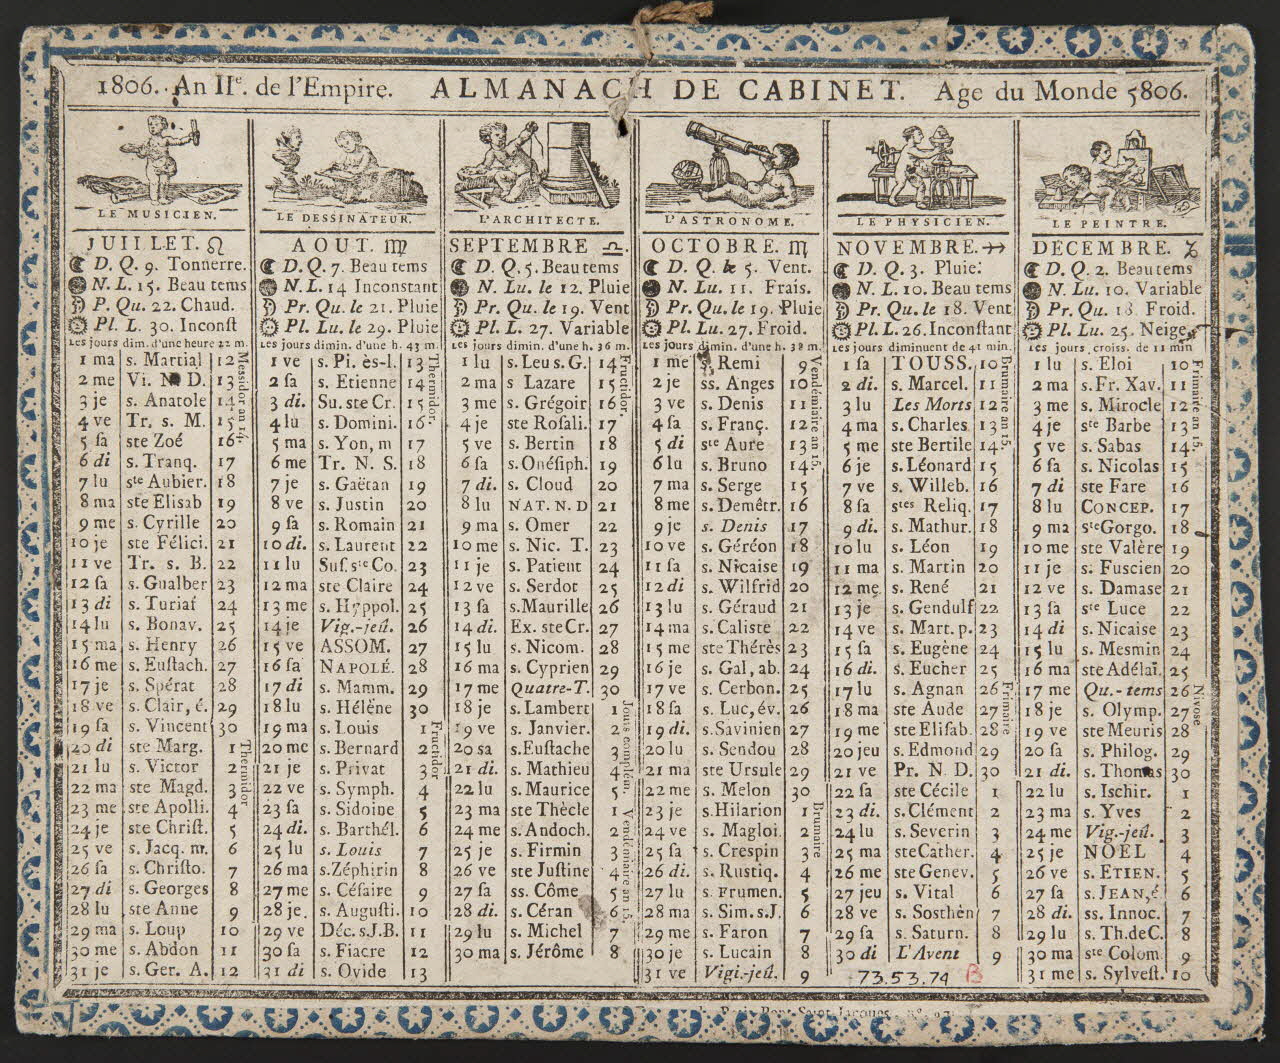 1806. An IIe. de l'Empire. ALMANACH DE CABINET. Age du Monde 5806.
LE MUSICIEN.
JUILLET. ♌
D. Q. 9. Tonnerre.
N. L. 15. Beau tems
P. Qu. 22. Chaud.
Pl. L. 30. Inconst
Les jours dim. d'une heure 22 m.
1 ma s. Martial 12
2 me Vi. N D. 13
3 je s. Anatole 14
4 ve Tr. s. M. 15
5 sa ste Zoé 16
6 di s. Tranq. 17
7 lu ste Aubier. 18
8 ma ste Elisab 19
9 me s. Cyrille 20
10 je ste Félici. 21
11 ve Tr. s. B. 22
12 sa s. Gualber 23
13 di s. Turiaf 24
14 lu s. Bonav. 25
15 ma s. Henry 26
16 me s. Eustach. 27
17 je s. Spérat 28
18 ve s. Clair, é. 29
19 sa s. Vincent 30
20 di ste Marg. 1
21 lu s. Victor 2
22 ma ste Magd. 3
23 me ste Apolli. 4
24 je ste Christ. 5
25 ve s. Jacq. m. 6
26 sa s. Christo. 7
27 di s. Georges 8
28 lu ste Anne 9
29 ma s. Loup 10
30 me s. Abdon 11
31 je s. Ger. A. 12
Messidor an 14.
Thermidor
LE DESSINATEUR.
AOUT. ♍
D. Q. 7. Beau tems
N. L. 14 Inconstant
Pr. Qu. le 21. Pluie
Pl. Lu. le 29. Pluie
Les jours dimin. d'une h. 43 m.
1 ve s. Pi. ès-l. 13
2 sa s. Etienne 14
3 di. Su. ste Cr. 15
4 lu s. Domini. 16
5 ma s. Yon, m 17
6 me Tr. N. S. 18
7 je s. Gaëtan 19
8 ve s. Justin 20
9 sa s. Romain 21
10 di. s. Laurent 22
11 lu Sus. ste Co. 23
12 ma ste Claire 24
13 me s. Hyppol. 25
14 je Vig.-jeû. 26
15 ve ASSOM. 27
16 sa NAPOLÉ. 28
17 di s. Mamm. 29
18 lu s. Hélène 30
19 ma s. Louis 1
20 me s. Bernard 2
21 je s. Privat 3
22 ve s. Symph. 4
23 sa s. Sidoine 5
24 di. s. Barthél. 6
25 lu s. Louis 7
26 ma s. Zéphirin 8
27 me s. Césaire 9
28 je. s. Augusti. 10
29 ve Déc. s.J.B. 11
30 sa s. Fiacre 12
31 di s. Ovide 13
Thermidor.
Fructidor
L'ARCHITECTE.
SEPTEMBRE ♎.
D. Q. 5. Beau tems
N. Lu. le 12. Pluie
Pr. Qu. le 19. Vent
Pl. L. 27. Variable
Les jours dimin. d'une h. 36 m.
1 lu s. Leu s. G. 14
2 ma s Lazare 15
3 me s. Grégoir 16
4 je ste Rosali. 17
5 ve s. Bertin 18
6 sa s. Onésiph. 19
7 di. s. Cloud 20
8 lu NAT. N. D 21
9 ma s. Omer 22
10 me s. Nic. T. 23
11 je s. Patient 24
12 ve s. Serdot 25
13 sa s. Maurille 26
14 di. Ex. ste Cr. 27
15 lu s. Nicom. 28
16 ma s. Cyprien 29
17 me Quatre-T. 30
18 je s. Lambert 1
19 ve s. Janvier. 2
20 sa s. Eustache 3
21 di. s. Mathieu 4
22 lu s. Maurice 5
23 ma ste Thècle 1
24 me s. Andoch. 2
25 je s. Firmin 3
26 ve ste Justine 4
27 sa ss. Côme 5
28 di. s. Céran 6
29 lu s. Michel 7
30 ma s. Jérôme 8
Fructidor.
Jours complém.
Vendémiaire an 15.
L'ASTRONOME.
OCTOBRE. ♏
D. Q. le 5. Vent.
N. Lu. 11. Frais.
Pr. Qu. le 19. Pluie
Pl. Lu. 27. Froid.
Les jours dimin. d'une h. 38 m.
1 me s. Remi 9
2 je ss. Anges 10
3 ve s. Denis 11
4 sa s. Franç. 12
5 di ste Aure 13
6 lu s. Bruno 14
7 ma s. Serge 15
8 me s. Demêtr. 16
9 je s. Denis 17
10 ve s. Géréon 18
11 sa s. Nicaise 19
12 di s. Wilfrid 20
13 lu s. Géraud 21
14 ma s. Caliste 22
15 me ste Thérès 23
16 je s. Gal, ab. 24
17 ve s. Cerbon. 25
18 sa s. Luc, év. 26
19 di. s. Savinien 27
20 lu s. Sendou 28
21 ma ste Ursule 29
22 me s. Melon 30
23 je s. Hilarion 1
24 ve s. Magloi. 2
25 sa s. Crespin 3
26 di. s. Rustiq. 4
27 lu s. Frumen. 5
28 ma s. Sim. s.J. 6
29 me s. Faron 7
30 je s. Lucain 8
31 ve Vigi.-jeû. 9
Vendémiaire an 15.
Brumaire
LE PHYSICIEN.
NOVEMBRE. ♐
D. Q. 3. Pluie.
N. L. 10. Beau tems
Pr. Qu. le 18. Vent
Pl. L. 26. Inconstant
Les jours diminuent de 41 min.
1 sa TOUSS. 10
2 di. s. Marcel. 11
3 lu Les Morts 12
4 ma s. Charles 13
5 me ste Bertile 14
6 je s. Léonard 15
7 ve s. Willeb. 16
8 sa stes Reliq. 17
9 di. s. Mathur. 18
10 lu s. Léon 19
11 ma s. Martin 20
12 me s. René 21
13 je s. Gendulf 22
14 ve s. Mart. p. 23
15 sa s. Eugène 24
16 di. s. Eucher 25
17 lu s. Agnan 26
18 ma ste Aude 27
19 me ste Elisab. 28
20 jeu s. Edmond 29
21 ve Pr. N D. 30
22 sa ste Cécile 1
23 di. s. Clément 2
24 lu s. Severin 3
25 ma ste Cather. 4
26 me ste Genev. 5
27 jeu s. Vital 6
28 ve s. Sosthèn 7
29 sa s. Saturn. 8
30 di L'Avent 9
Brumaire an 15.
Frimaire
73.53.74 B
LE PEINTRE.
DÉCEMBRE. ♑
D. Q. 2. Beau tems
N. Lu. 10. Variable
Pr. Qu. 18. Froid.
Pl. Lu. 25. Neige.
Les jours croiss. de 11 min
1 lu s. Eloi 10
2 ma s. Fr. Xav. 11
3 me s. Mirocle 12
4 je ste Barbe 13
5 ve s. Sabas 14
6 sa s. Nicolas 15
7 di ste Fare 16
8 lu CONCEP. 17
9 ma ste Gorgo. 18
10 me ste Valère 19
11 je s. Fuscien 20
12 ve s. Damase 21
13 sa ste Luce 22
14 di s. Nicaise 23
15 lu s. Mesmin 24
16 ma ste Adélaï. 25
17 me Qu.-tems 26
18 je s. Olymp. 27
19 ve ste Meuris 28
20 sa s. Philog. 29
21 di. s. Thomas 30
22 lu s. Ischir. 1
23 ma s. Yves 2
24 me Vig.-jeû. 3
25 je NOEL 4
26 ve s. ETIEN. 5
27 sa s. JEAN, é 6
28 di. ss. Innoc. 7
29 lu s. Th. de C. 8
30 ma ste Colom. 9
31 me s. Sylvest. 10
Frimaire an 15.
Nivose
Pont Saint Jacques